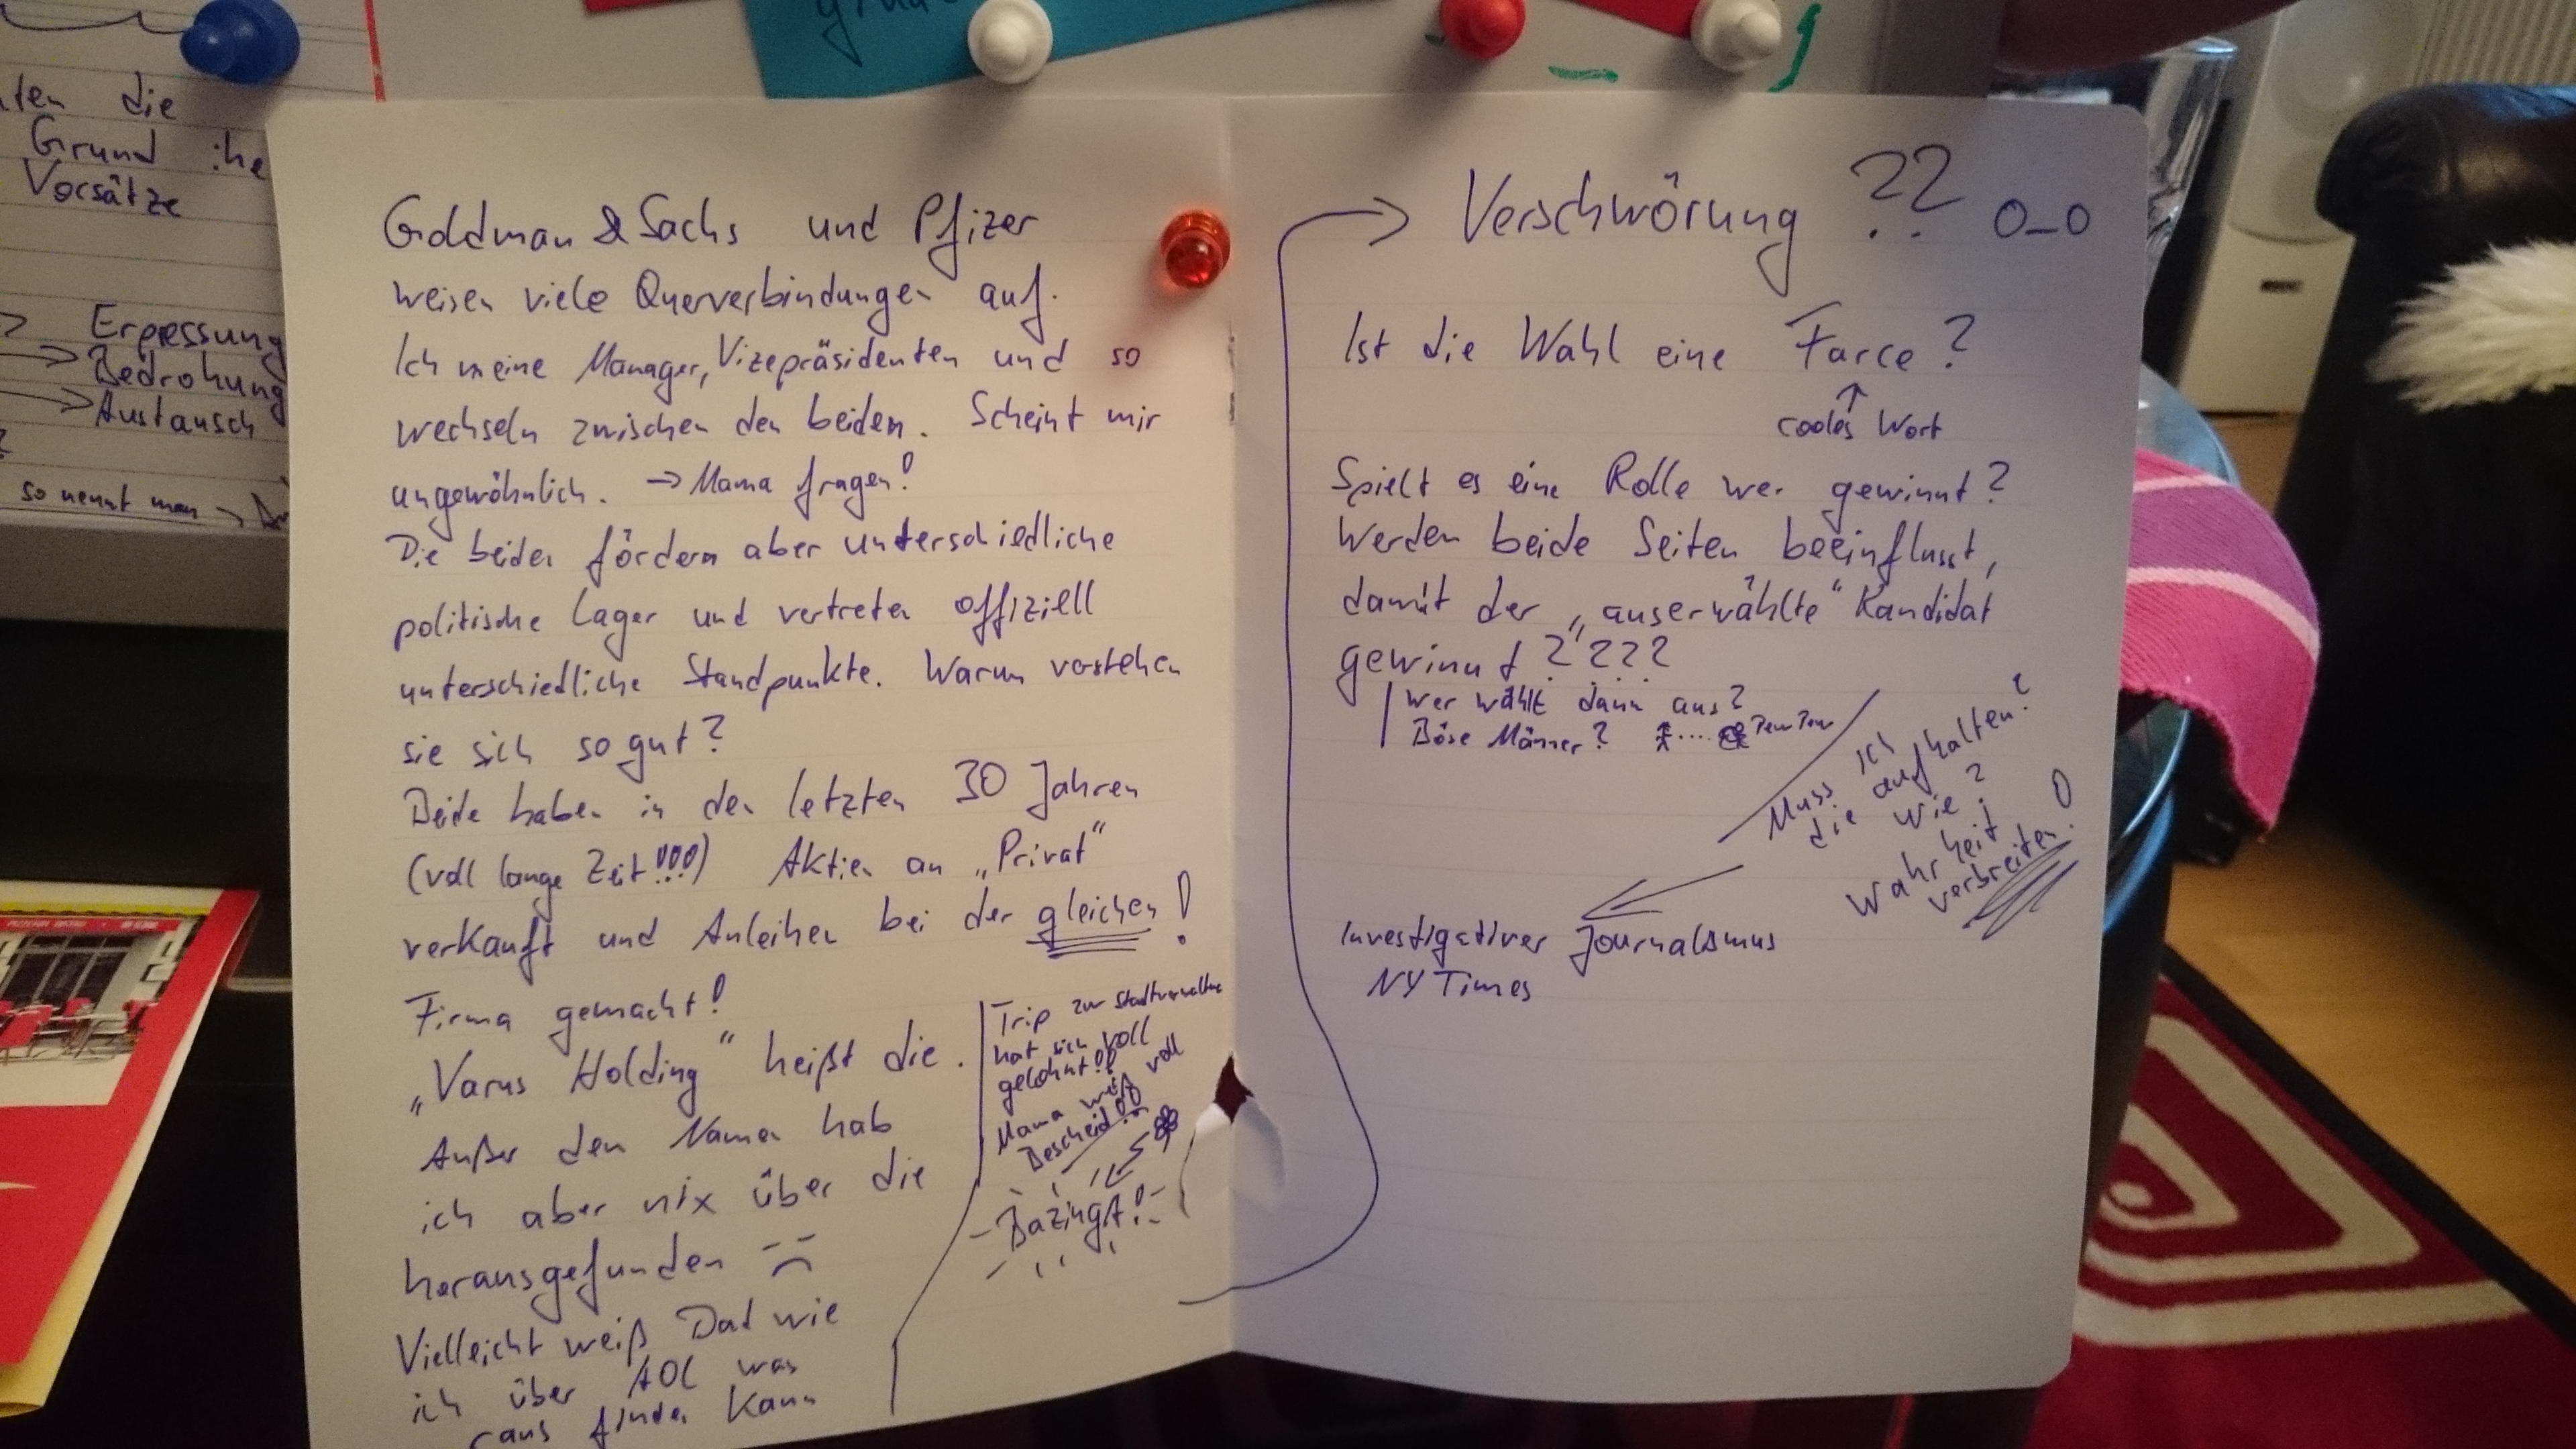 ten die
Grund ihe
Vorsätze
Erpressung
Bedrohung
Austausch
so nennt man →
Goldman & Sachs und Pfizer
weisen viele Querverbindungen auf.
Ich meine Manager, Vizepräsidenten und so
wechseln zwischen den beiden. Scheint mir
ungewöhnlich. → Mama fragen!
Die beiden fördern aber unterschiedliche
politische Lager und vertreten offiziell
unterschiedliche Standpunkte. Warum verstehen
sie sich so gut?
Beide haben in den letzten 30 Jahren
(voll lange Zeit!!!) Aktien an „Privat“
verkauft und Anleihen bei der gleichen!
Firma gemacht!
„Varus Holding“ heißt die.
Außer den Namen hab
ich aber nix über die
herausgefunden
Vielleicht weiß Dad wie
ich über AOL was
raus finden kann
Trip zur Stadtverwaltung
hat sich voll
gelohnt!!
Mama weiß voll
Bescheid!!
BazingA!
→ Verschwörung ?? O_O
Ist die Wahl eine Farce?
↑
cooles Wort
Spielt es eine Rolle wer gewinnt?
Werden beide Seiten beeinflusst,
damit der „auserwählte“ Kandidat
gewinnt ????
Wer wählt dann aus?
Böse Männer? Pew Pew
Muss ich
die aufhalten?
Wie?
Wahrheit
verbreiten!
Investigativer Journalismus
NY Times